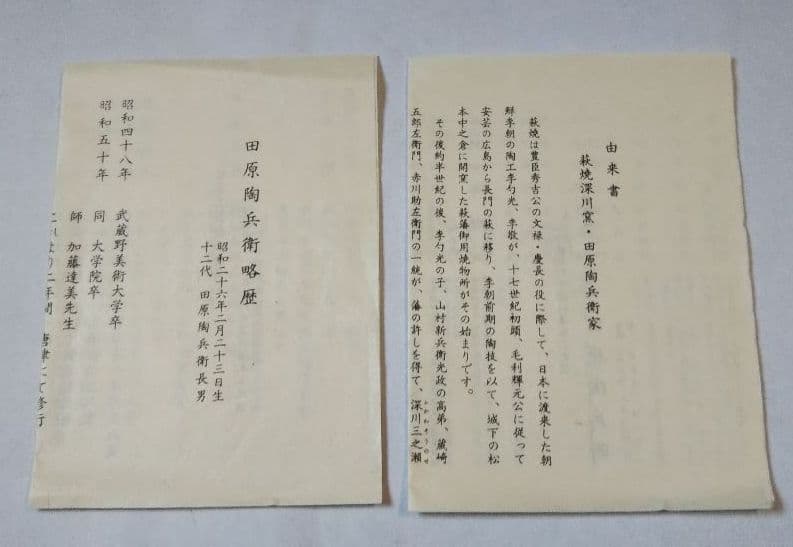 由来書
萩焼深川窯・田原陶兵衛家
萩焼は豊臣秀吉公の文禄・慶長の役に際して、日本に渡来した朝
鮮李朝の陶工李勺光、李敬が、十七世紀初頭、毛利輝元公に従って
安芸の広島から長門の萩に移り、李朝前期の陶技を以て、城下の松
本中之倉に開窯した萩藩御用焼物所がその始まりです。
その後約半世紀の後、李勺光の子、山村新兵衛光政の高弟、蔵崎
五郎左衛門、赤川助左衛門の一統が、藩の許しを得て、深川三之瀬
ふかわそうのせ
田原陶兵衛略歴
昭和二十六年二月二十三日生
十二代 田原陶兵衛長男
昭和四十八年 武蔵野美術大学卒
昭和五十年 同 大学院卒
師 加藤達美先生
これより二年間 唐津にて修行